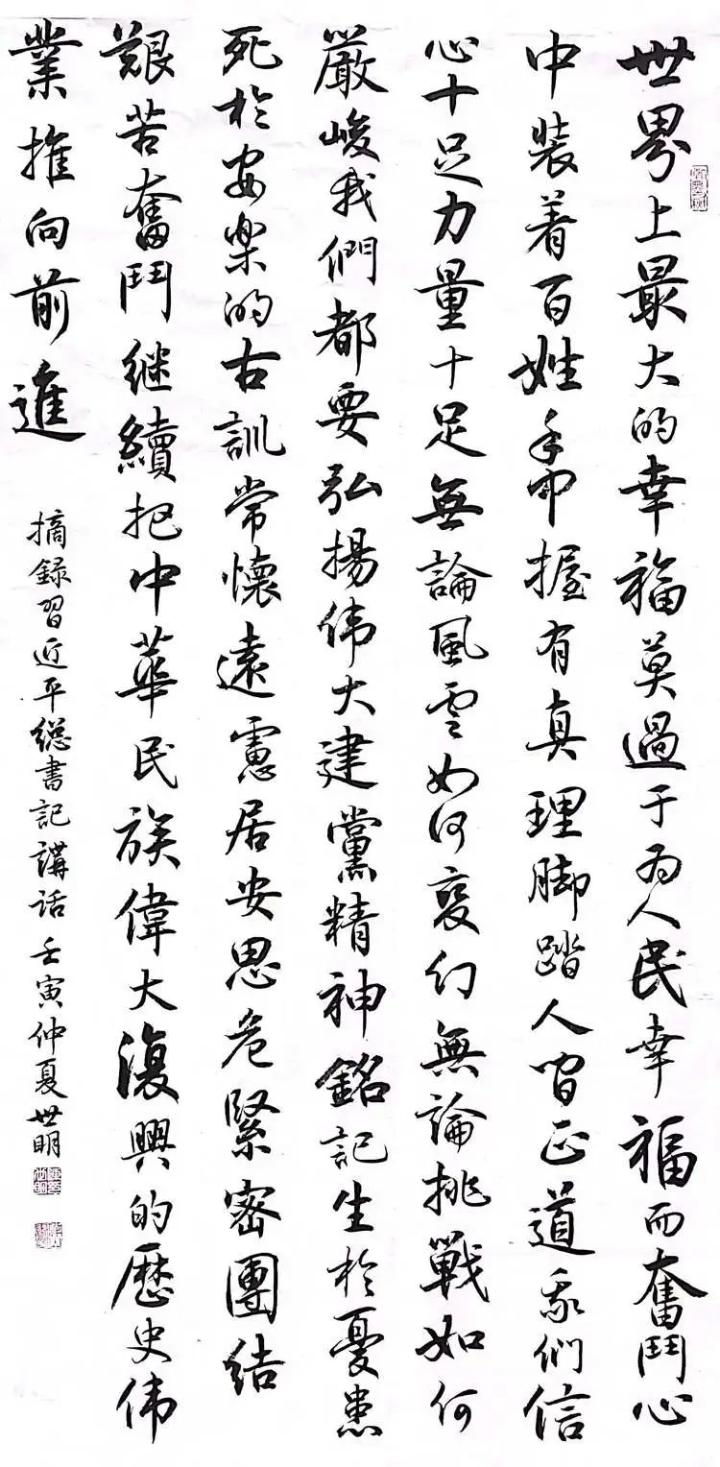 世界上最大的幸福莫過于为人民幸福而奮鬥心
中装着百姓手中握有真理脚踏人间正道我们信
心十足力量十足無論風雲如何变幻無論挑戰如何
嚴峻我們都要弘揚伟大建黨精神銘記生於憂患
死於安樂的古訓常懷遠慮居安思危緊密團结
艰苦奮鬥继續把中華民族偉大復興的歷史伟
業推向前進
摘録習近平總書記講话壬寅仲夏世明